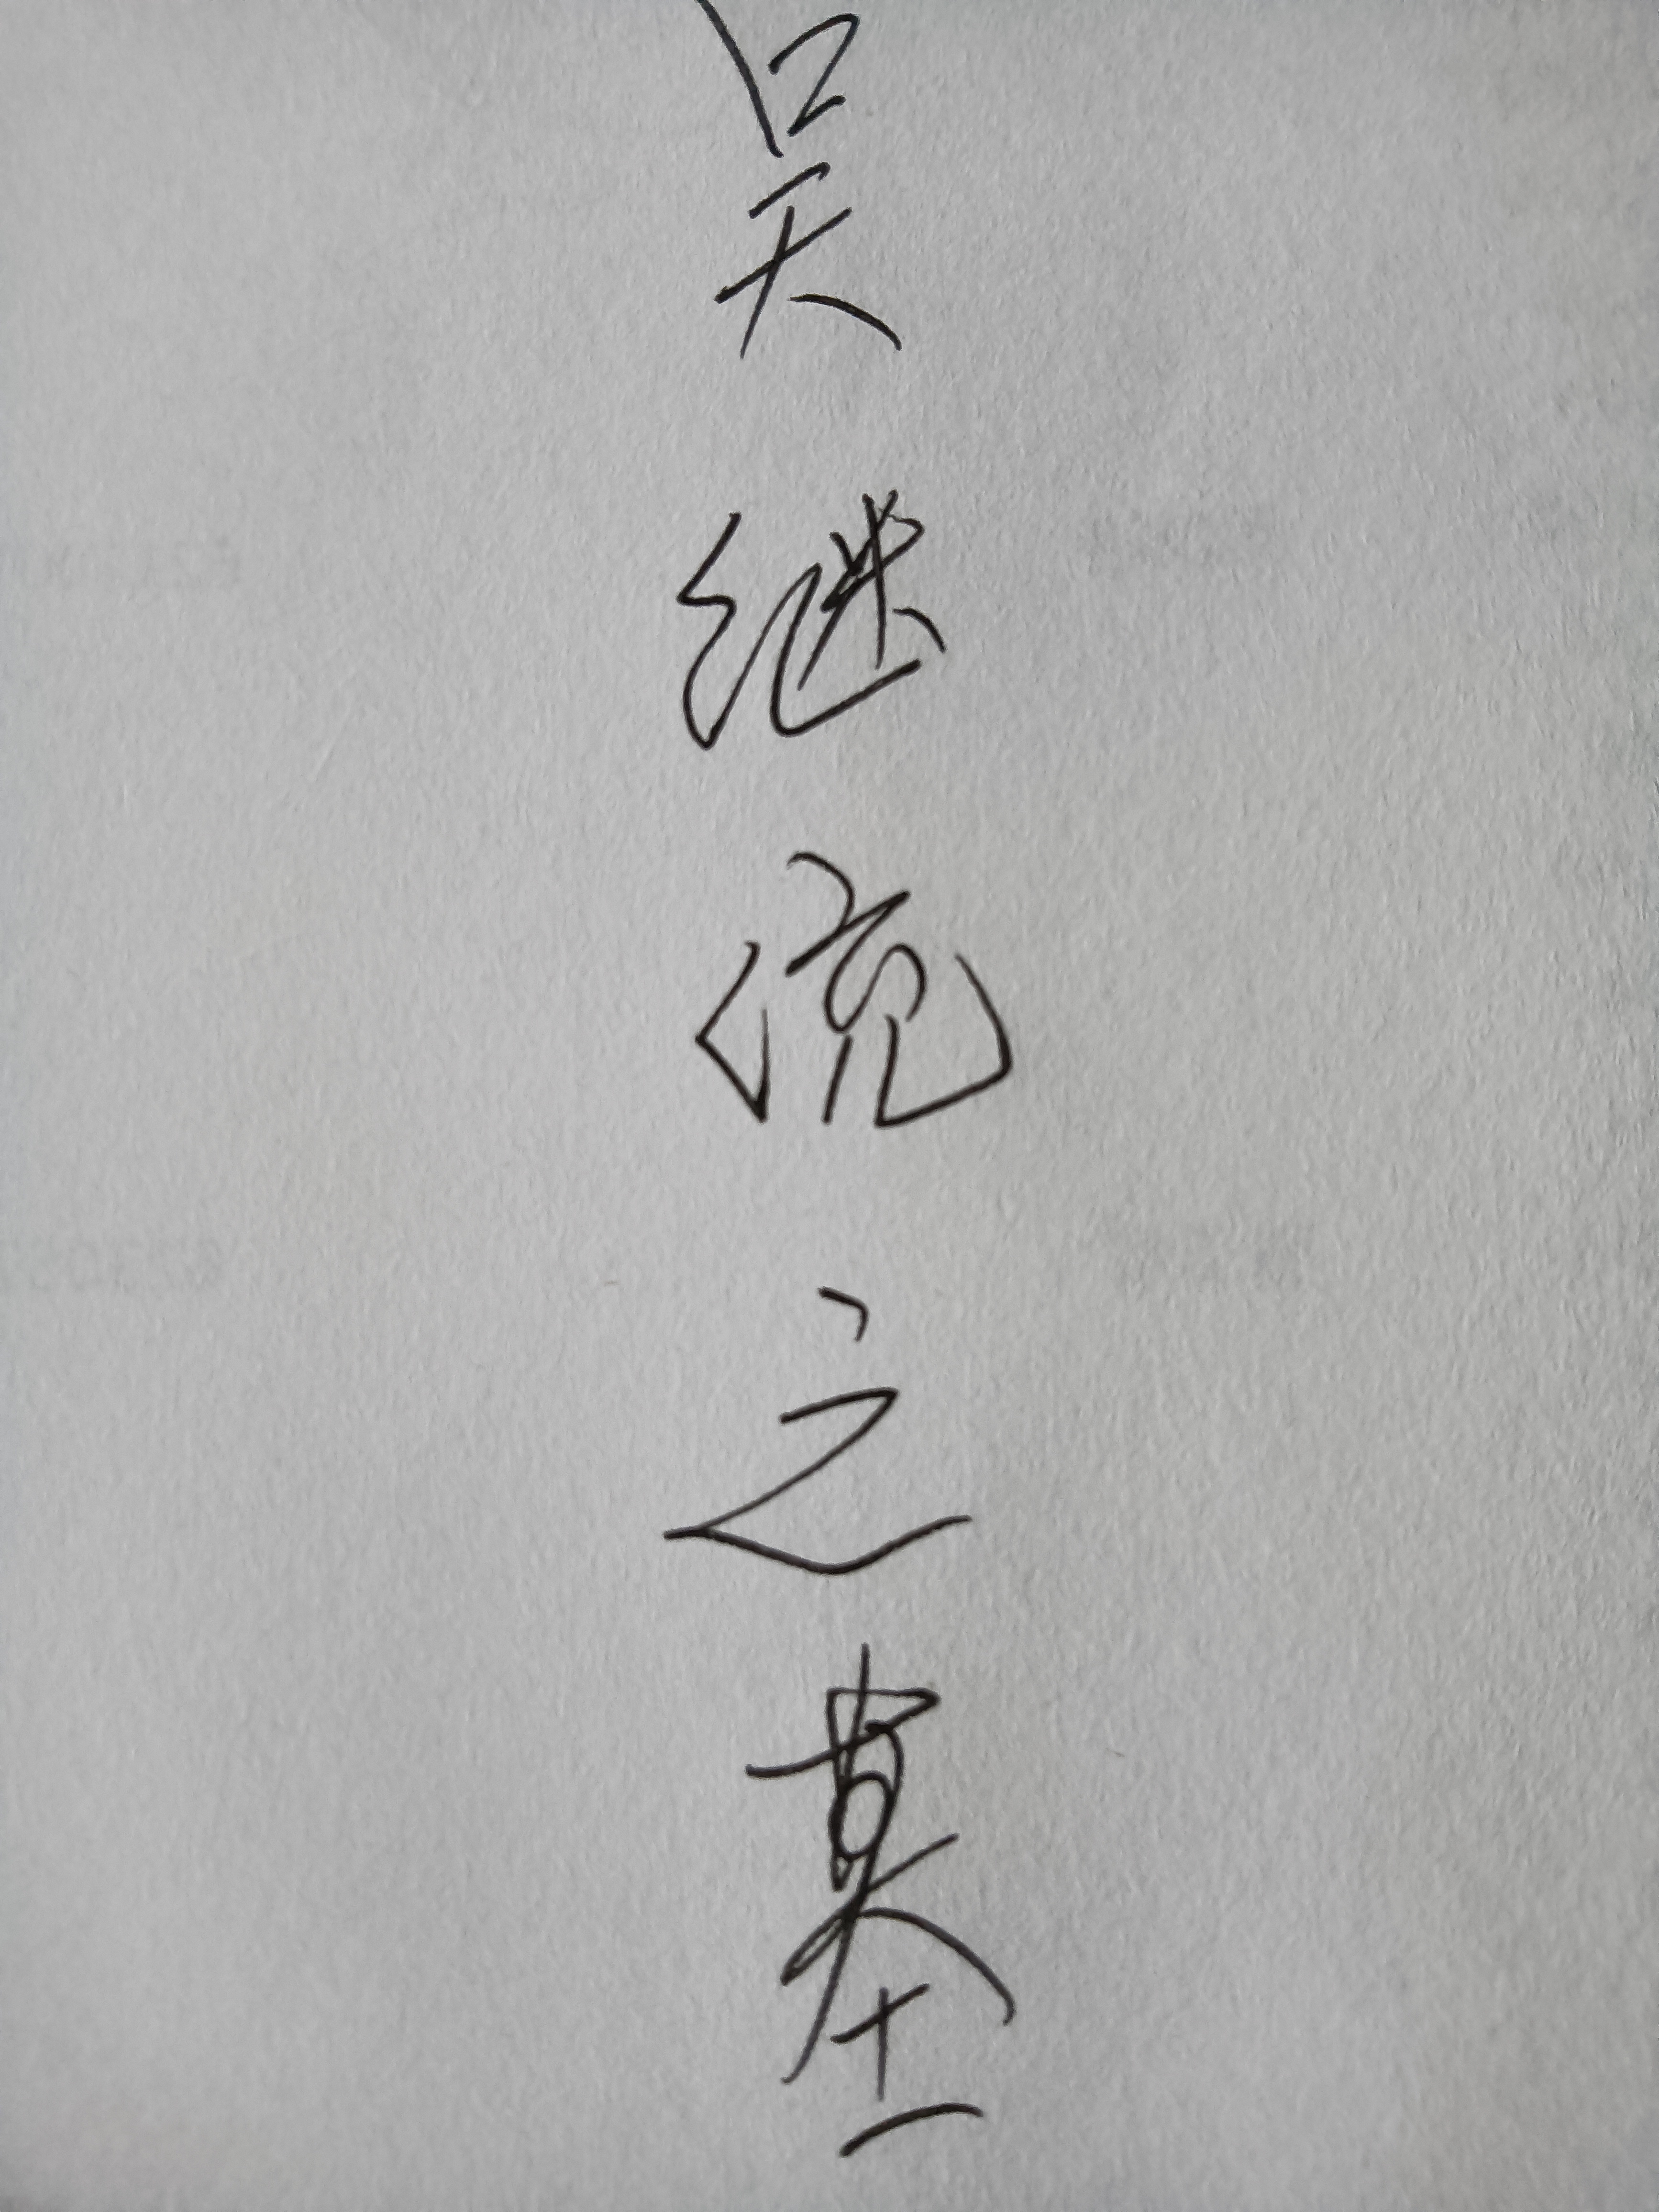 吴继统之墓